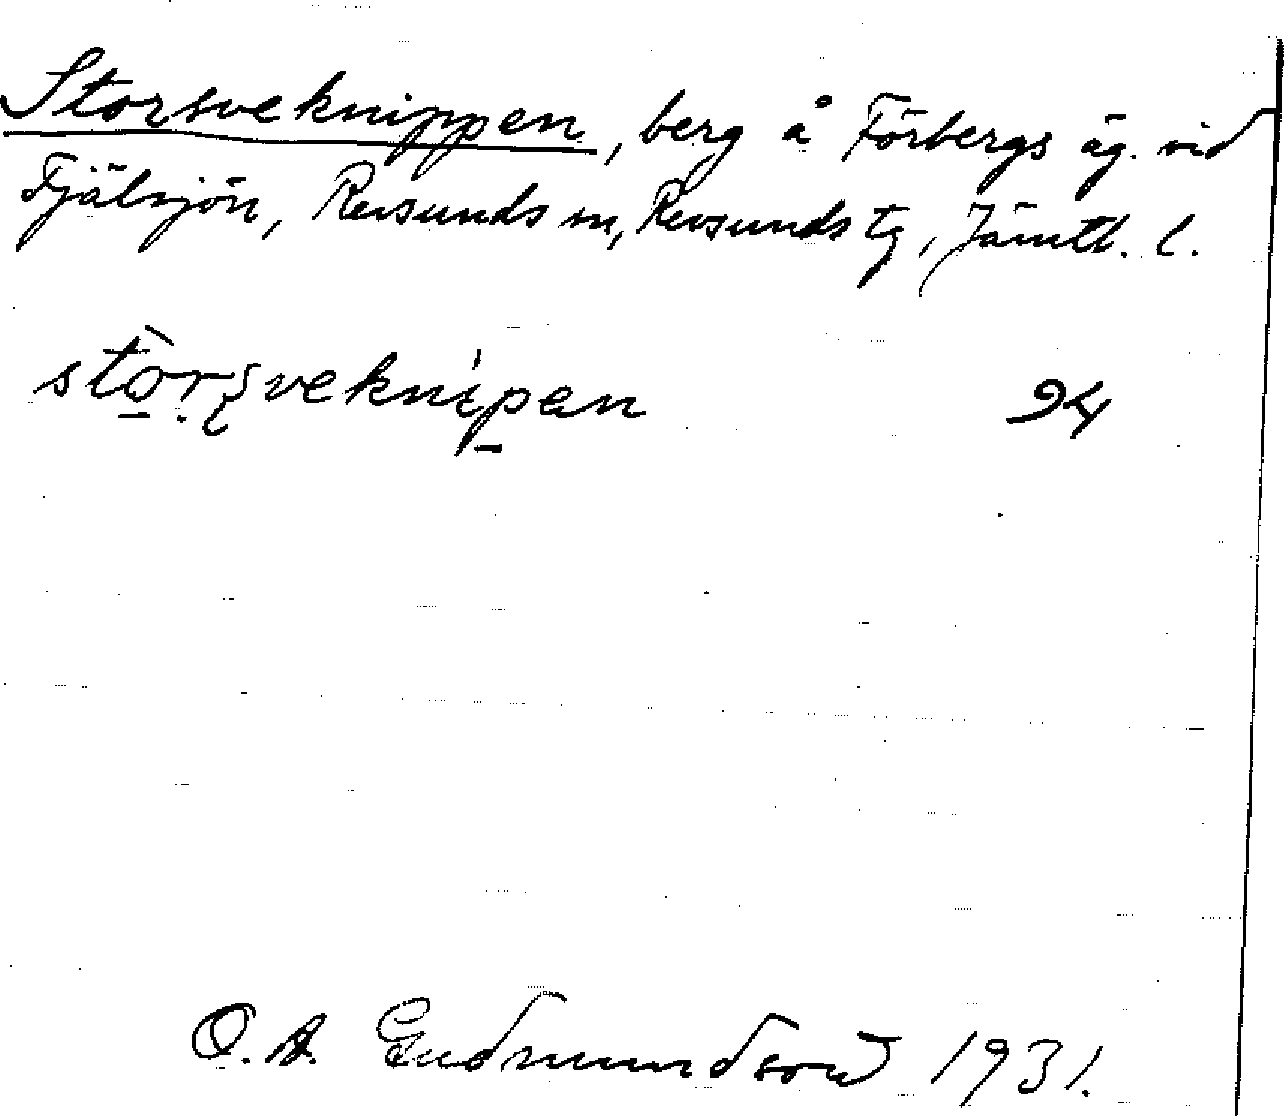 Storsveknippen, berg å Förbergs äg. vid
Fjälsjön, Revsunds sn, Revsunds tg, Jämtl. l.
stòrsveknipen 94
O. A. Gudmundson 1931.